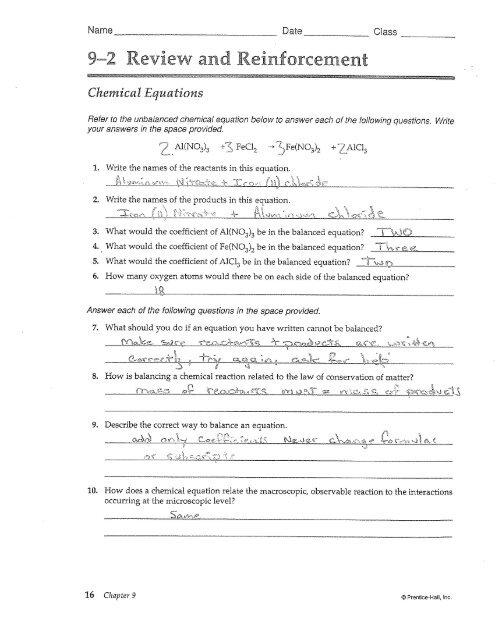 Name Date Class
9–2 Review and Reinforcement
Chemical Equations
Refer to the unbalanced chemical equation below to answer each of the following questions. Write
your answers in the space provided.
2 Al(NO₃)₃ +3 FeCl₂ →3 Fe(NO₃)₂ +2 AlCl₃
1. Write the names of the reactants in this equation.
Aluminum Nitrate + Iron (II) chloride
2. Write the names of the products in this equation.
Iron (II) Nitrate + Aluminum chloride
3. What would the coefficient of Al(NO₃)₃ be in the balanced equation? TWO
4. What would the coefficient of Fe(NO₃)₂ be in the balanced equation? Three
5. What would the coefficient of AlCl₃ be in the balanced equation? Two
6. How many oxygen atoms would there be on each side of the balanced equation?
18
Answer each of the following questions in the space provided.
7. What should you do if an equation you have written cannot be balanced?
Make sure reactants + products are written
correctly, try again, ask for help
8. How is balancing a chemical reaction related to the law of conservation of matter?
mass of reactants must = mass of products
9. Describe the correct way to balance an equation.
add only coefficients Never change formulas
or subscripts
10. How does a chemical equation relate the macroscopic, observable reaction to the interactions
occurring at the microscopic level?
Same
16 Chapter 9 © Prentice-Hall, Inc.